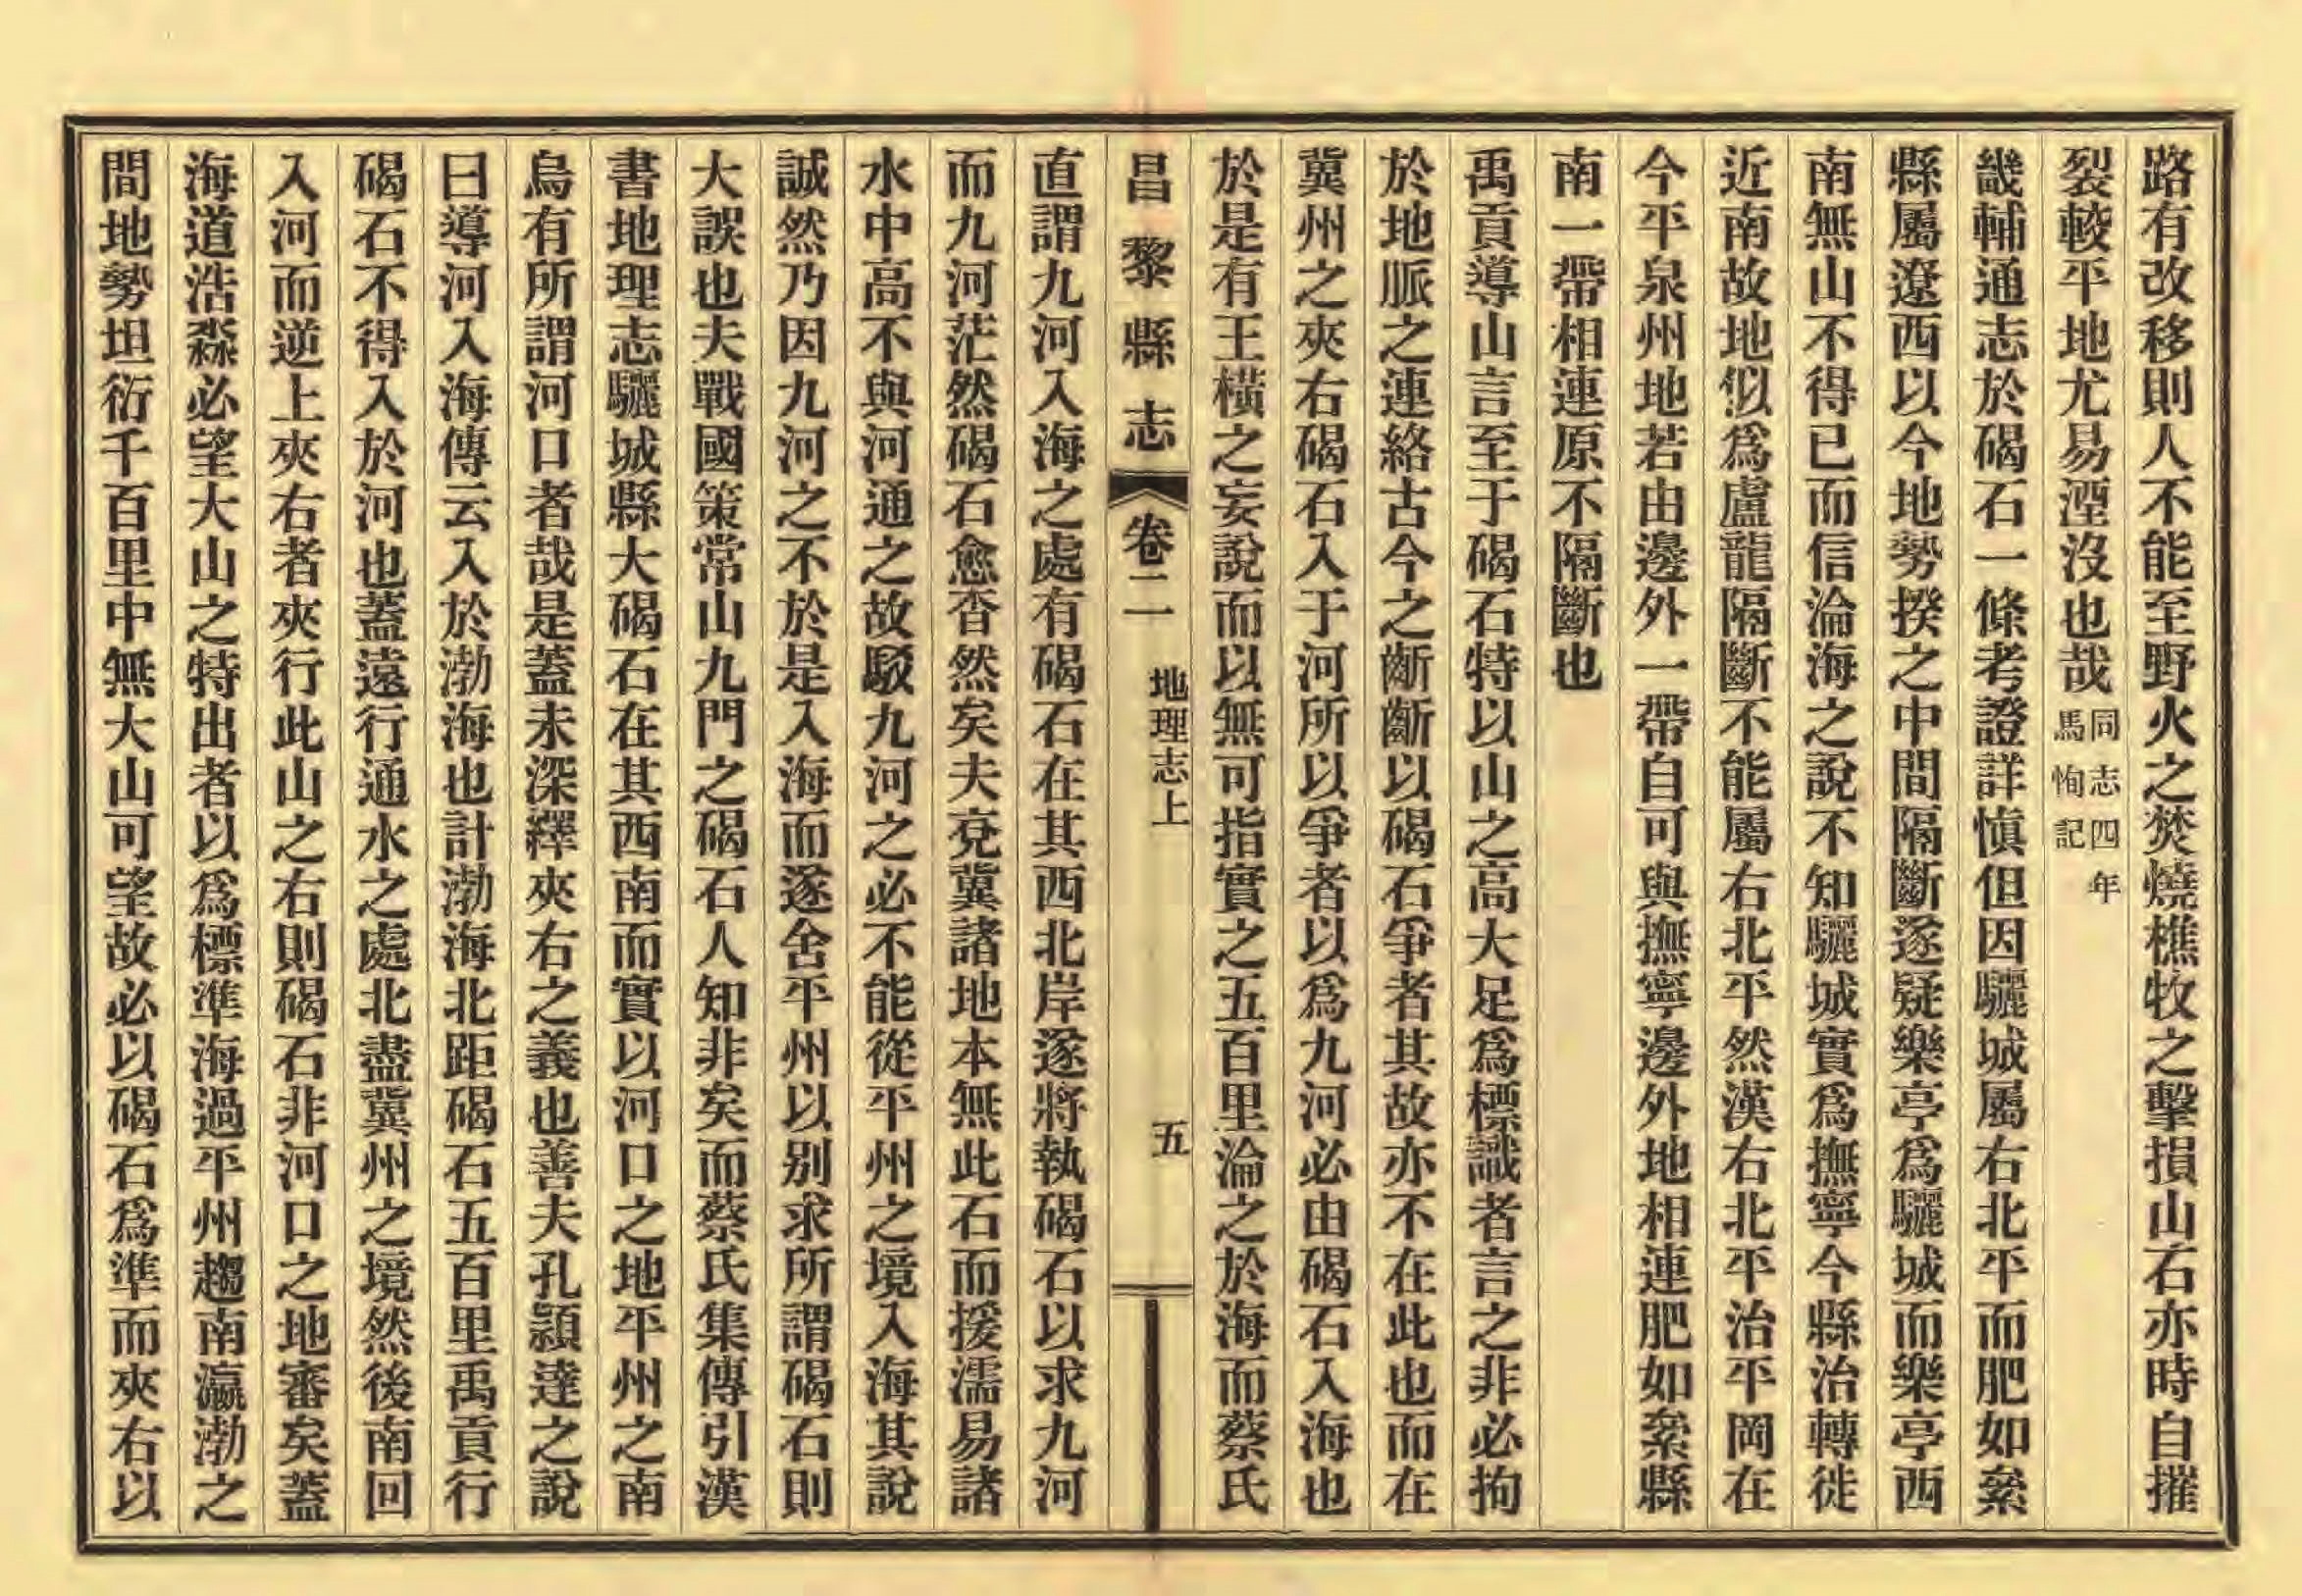 路有改移則人不能至野火之焚燒樵牧之擊損山石亦時自摧
裂較平地尤易湮沒也哉同志四年馬恂記
畿輔通志於碣石一條考證詳愼但因驪城屬右北平而肥如絫
縣屬遼西以今地勢揆之中間隔斷遂疑樂亭爲驪城而樂亭西
南無山不得已而信淪海之說不知驪城實爲撫寧今縣治轉徙
近南故地似爲盧龍隔斷不能屬右北平然漢右北平治平岡在
今平泉州地若由邊外一帶自可與撫寧邊外地相連肥如絫縣
南一帶相連原不隔斷也
禹貢導山言至于碣石特以山之高大足爲標識者言之非必拘
於地脈之連絡古今之齗齗以碣石爭者其故亦不在此也而在
冀州之夾右碣石入于河所以爭者以爲九河必由碣石入海也
於是有王橫之妄說而以無可指實之五百里淪之於海而蔡氏
昌黎縣志 卷二 地理志上 五
直謂九河入海之處有碣石在其西北岸遂將執碣石以求九河
而九河茫然碣石愈杳然矣夫兗冀諸地本無此石而援濡易諸
水中高不與河通之故駁九河之必不能從平州之境入海其說
誠然乃因九河之不於是入海而遂舍平州以别求所謂碣石則
大誤也夫戰國策常山九門之碣石人知非矣而蔡氏集傳引漢
書地理志驪城縣大碣石在其西南而實以河口之地平州之南
烏有所謂河口者哉是蓋未深繹夾右之義也善夫孔頴達之說
曰導河入海傳云入於渤海也計渤海北距碣石五百里禹貢行
碣石不得入於河也蓋遠行通水之處北盡冀州之境然後南回
入河而逆上夾右者夾行此山之右則碣石非河口之地審矣蓋
海道浩淼必望大山之特出者以爲標準海過平州趨南瀛渤之
間地勢坦衍千百里中無大山可望故必以碣石爲準而夾右以